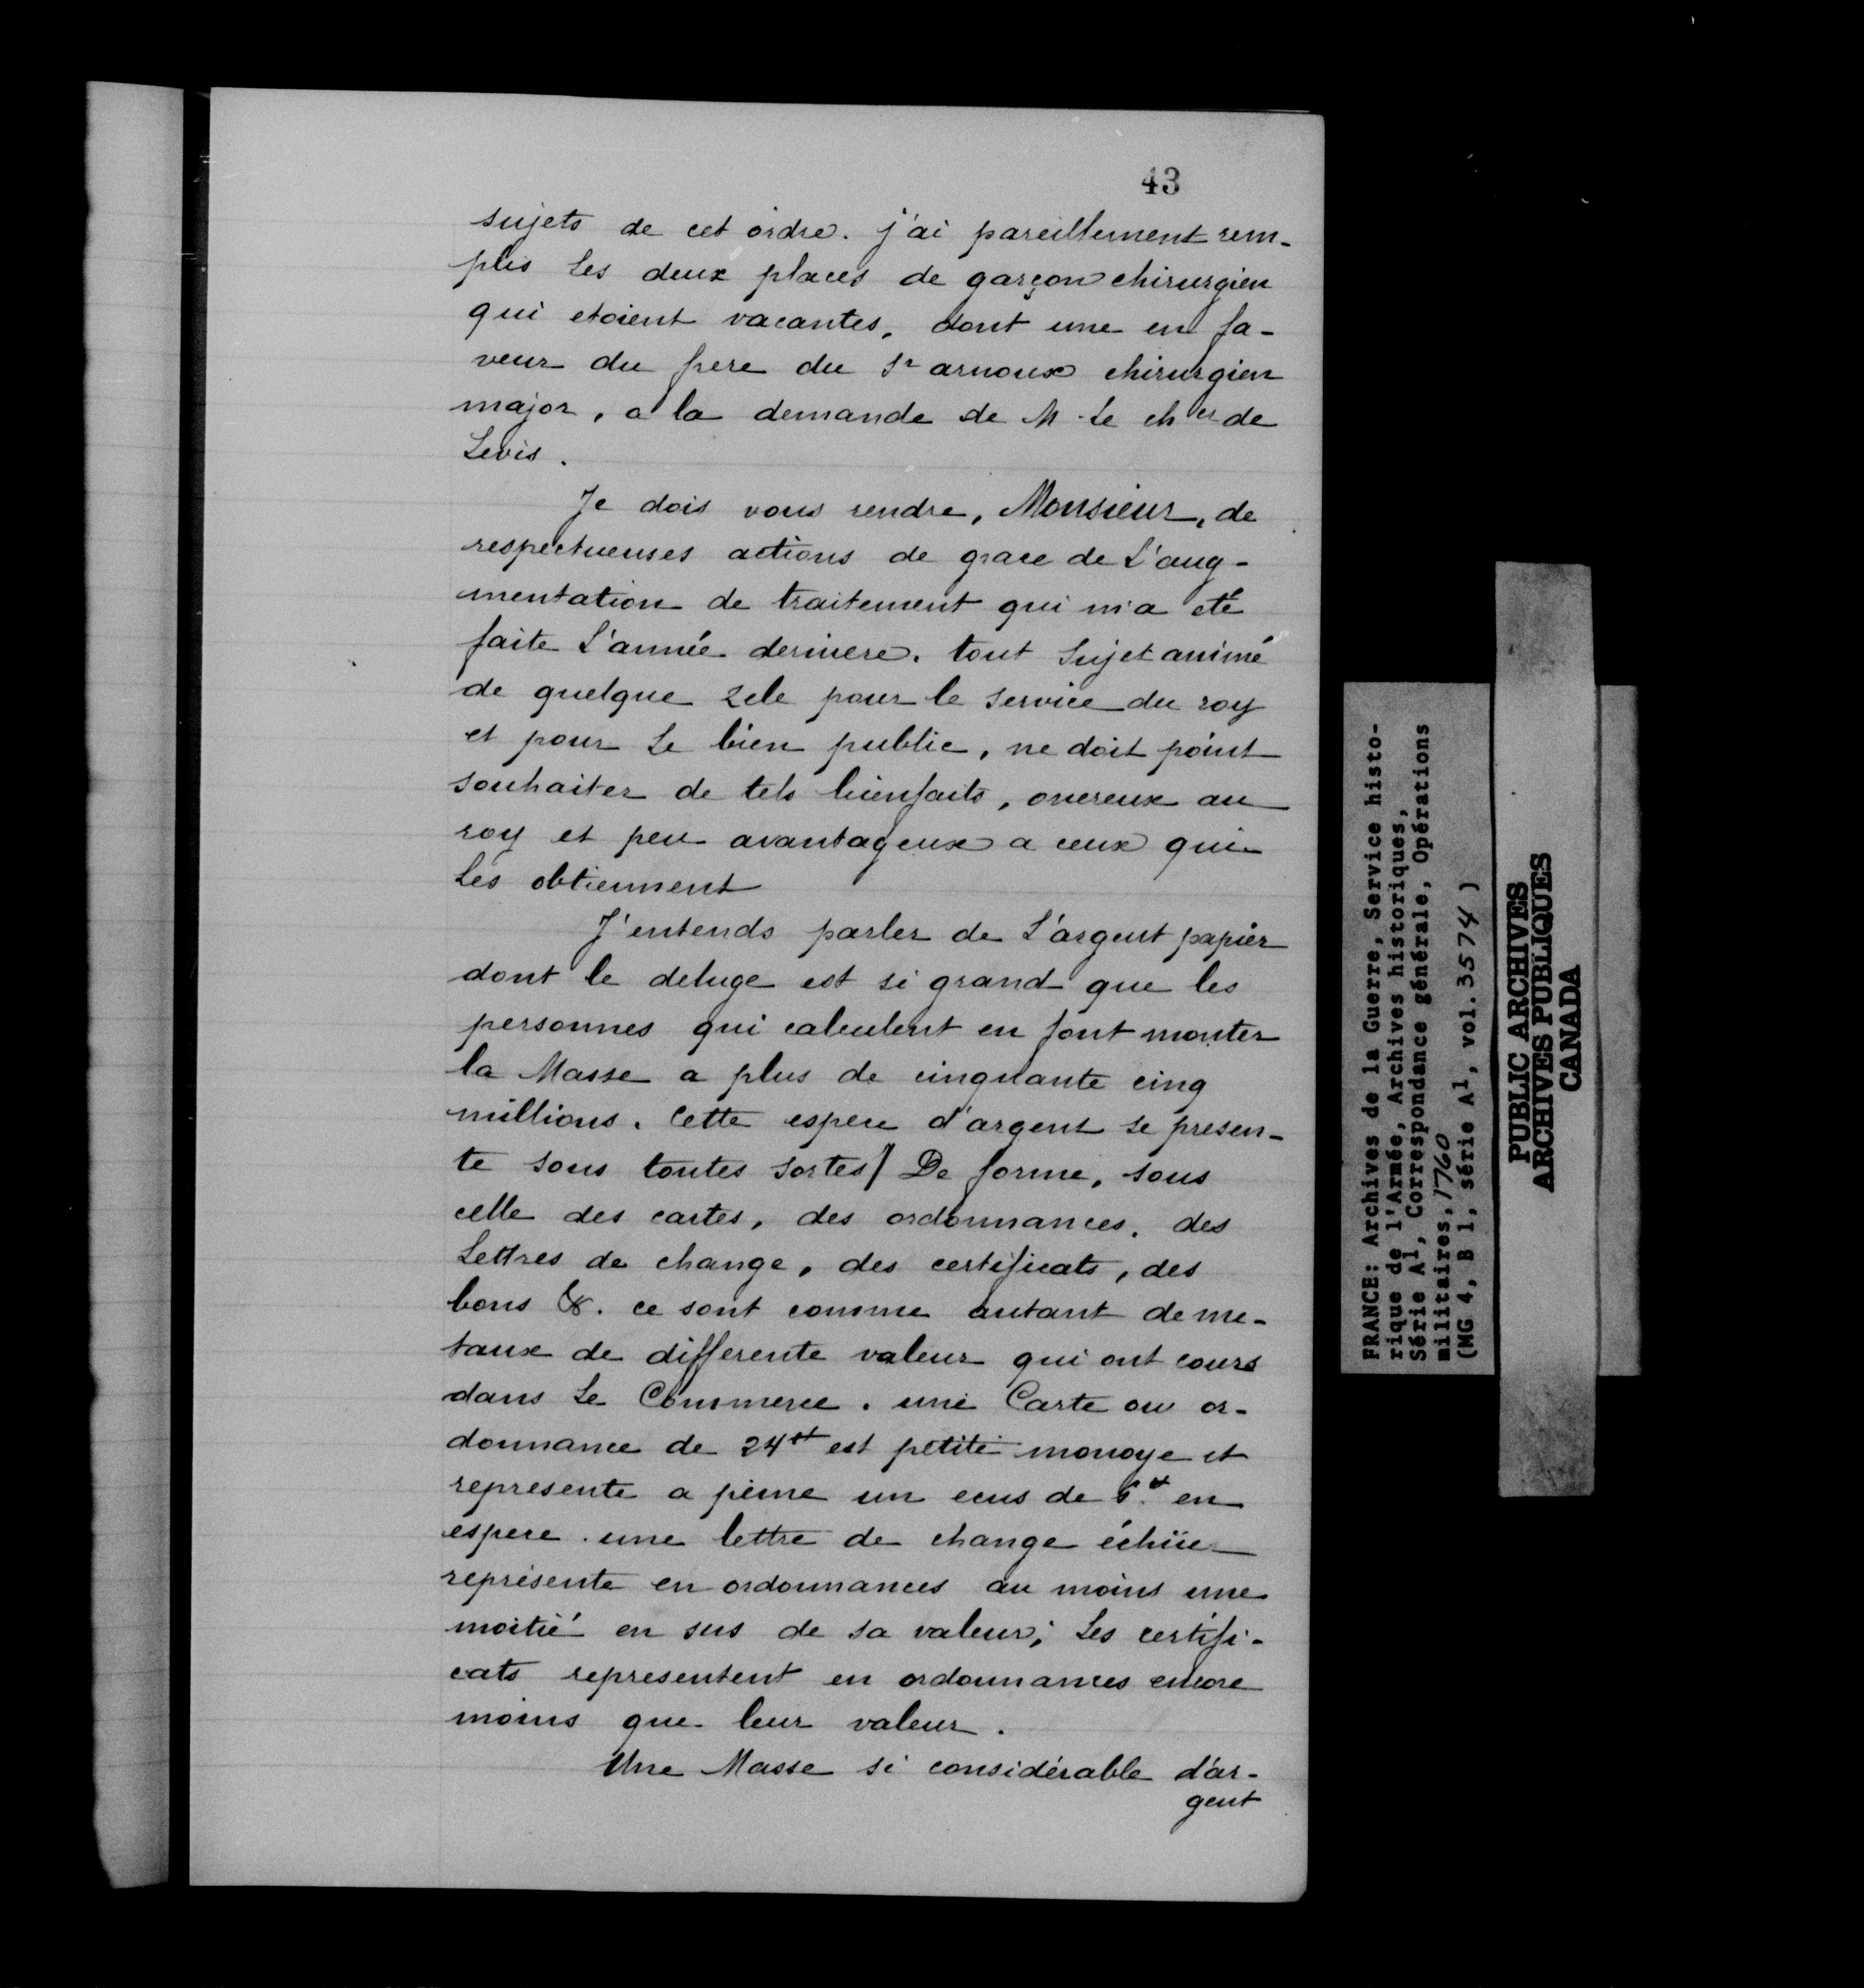 43
sujets de cet ordre. j'ai pareillement rem-
plis Les deux places de garçon chirurgien
qui etoient vacantes, dont une en fa-
veur du frere du Sr arnoux chirurgien
major, a la demande de M. Le cher de
Levis.
Je dois vous rendre, Monsieur, de
respectueuses actions de grace de L'aug-
mentation de traitement qui m'a eté
faite L'année derniere. tout Sujet animé
de quelque zele pour le service du roy
et pour Le bien public, ne doit point
souhaiter de tels bienfaits, onereux au
roy et peu avantageux a ceux qui
Les obtiennent
J'entends parler de L'argent papier
dont le deluge est si grand que les
personnes qui calculent en font monter
la Masse a plus de cinquante cinq
millions. Cette espece d'argent se presen-
te sous toutes sortes De forme, sous
celle des cartes, des ordonnances, des
Lettres de change, des certificats, des
bons &. ce sont comme autant de me-
taux de differente valeur qui ont cours
dans Le Commerce. une Carte ou or-
donnance de 24tt est petite monoye et
represente a peine un ecus de 6tt en
espece. une lettre de change échüe
représente en ordonnances au moins une
moitié en sus de sa valeur; Les certifi-
cats representent en ordonnances encore
moins que leur valeur.
Une Masse si considérable d'ar-
gent
FRANCE: Archives de la Guerre, Service histo-
rique de l'Armée, Archives historiques,
Série A1, Correspondance générale, Opérations
militaires, 1760
(MG 4, B 1, série A1, vol. 3574)
PUBLIC ARCHIVES
ARCHIVES PUBLIQUES
CANADA